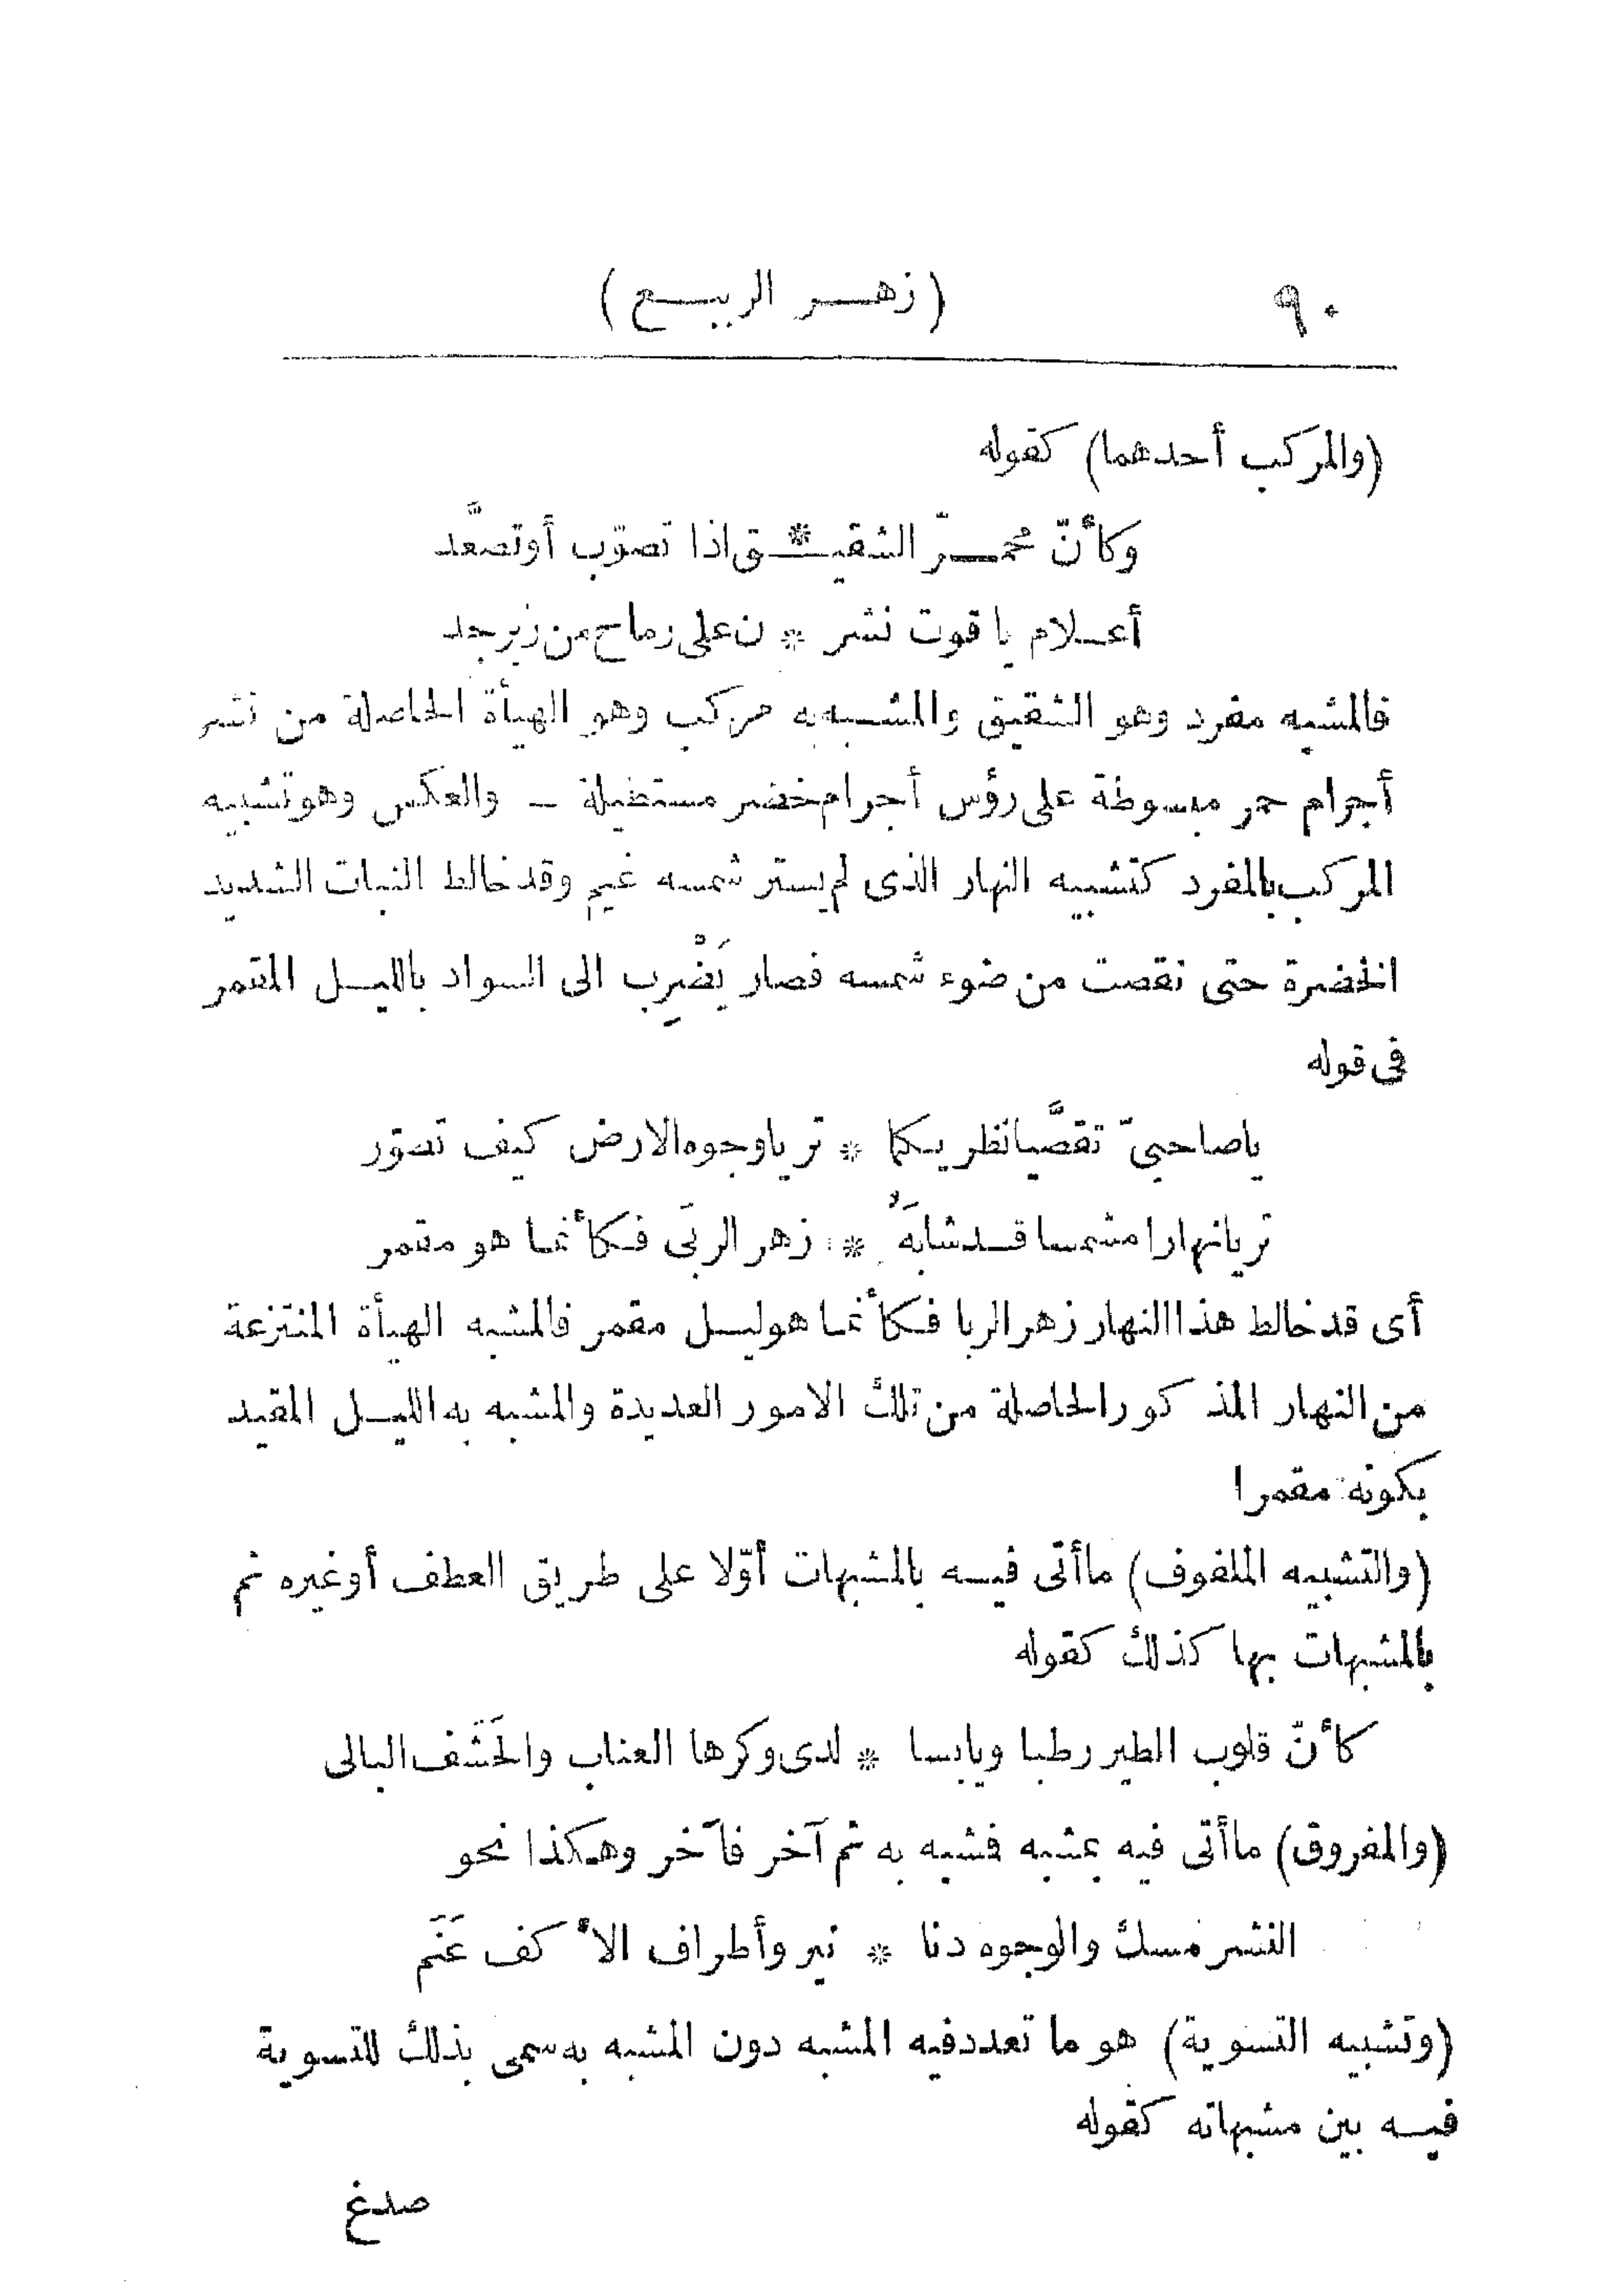 ٩٠ (زهر الربيع)
(والمركب أحدهما) كقوله
وكأنّ محمرّ الشقيـ * ـق اذا تصوّب أوتصعَّد
أعلام ياقوت نشر * ن على رماح من زبرجد
فالمشبه مفرد وهو الشقيق والمشبه به مركب وهو الهيأة الحاصلة من نشر
أجرام حمر مبسوطة على رؤس أجرام خضر مستطيلة ــ والعكس وهو تشبيه
المركب بالمفرد كتشبيه النهار الذى لم يستر شمسه غيم وقد خالط النبات الشديد
الخضرة حتى نقصت من ضوء شمسه فصار يَضْرِب الى السواد بالليل المقمر
فى قوله
ياصاحبىّ تقصَّيا نظريكما * تريا وجوه الارض كيف تصوّر
تريا نهارا مشمسا قد شابَهُ * زهر الربَى فكأنما هو مقمر
أى قد خالط هذا النهار زهر الربا فكأنما هو ليل مقمر فالمشبه الهيأة المنتزعة
من النهار المذكور الحاصلة من تلك الامور العديدة والمشبه به الليل المقيد
بكونه مقمرا
(والتشبيه الملفوف) ماأتى فيه بالمشبهات أوّلا على طريق العطف أوغيره ثم
بالمشبهات بها كذلك كقوله
كأنّ قلوب الطير رطبا ويابسا * لدى وكرها العناب والحَشَف البالى
(والمفروق) ماأتى فيه بمشبه فشبه به ثم آخر فآخر وهكذا نحو
النشر مسك والوجوه دنا * نير وأطراف الأكف عَنَم
(وتشبيه التسوية) هو ما تعدد فيه المشبه دون المشبه به سمى بذلك للتسوية
فيه بين مشبهاته كقوله
صدغ